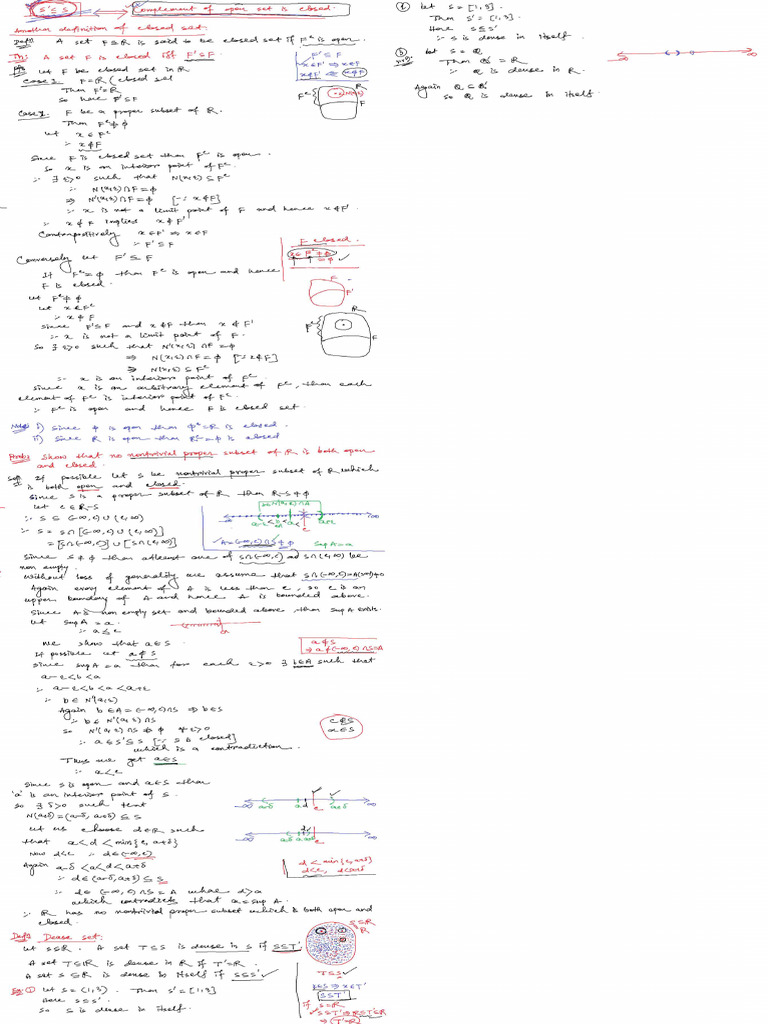 S'⊆S Complement of open set is closed.
Another definition of closed set:
Defn: A set F⊆R is said to be closed set if Fᶜ is open.
Th: A set F is closed iff F'⊆F.
F'⊆F
x∈F' ⇒ x∈F
x∉F' ⇐ x∉F
Let F be closed set in R
Case 1 F=R (closed set
Then F'=R
So here F'⊆F
Case 2 F be a proper subset of R.
Then Fᶜ≠ϕ
Let x∈Fᶜ
∴ x∉F
Since F is closed set then Fᶜ is open.
So x is an interior point of Fᶜ.
∴ ∃ ε>0 such that N(x,ε)⊆Fᶜ
∴ N(x,ε)∩F=ϕ
⇒ N'(x,ε)∩F=ϕ [∵ x∉F]
∴ x is not a limit point of F and hence x∉F'.
∴ x∉F implies x∉F'
Contrapositively x∈F' ⇒ x∈F
∴ F'⊆F
F closed.
Conversely let F'⊆F
If Fᶜ=ϕ then Fᶜ is open and hence
F is closed.
Let Fᶜ≠ϕ
Let x∈Fᶜ
∴ x∉F
Since F'⊆F and x∉F then x∉F'
∴ x is not a limit point of F.
So ∃ ε>0 such that N'(x,ε)∩F=ϕ
⇒ N(x,ε)∩F=ϕ [∵ x∉F]
⇒ N(x,ε)⊆Fᶜ
∴ x is an interior point of Fᶜ
Since x is an arbitrary element of Fᶜ, then each
element of Fᶜ is interior point of Fᶜ.
∴ Fᶜ is open and hence F is closed set.
Note: i) Since ϕ is open then ϕᶜ=R is closed.
ii) Since R is open then Rᶜ=ϕ is closed
Prob: Show that no nontrivial proper subset of R is both open
and closed.
Sol: If possible let S be nontrivial proper subset of R which
is both open and closed.
Since S is a proper subset of R then R-S≠ϕ
Let c∈R-S
∴ S⊆(-∞,c)∪(c,∞)
∴ S=S∩[(-∞,c)∪(c,∞)]
=[S∩(-∞,c)]∪[S∩(c,∞)]
A=(-∞,c)∩S≠ϕ Sup A=a
Since S≠ϕ then atleast one of S∩(-∞,c) and S∩(c,∞) be
non empty.
Without loss of generality we assume that S∩(-∞,c)=A(say)≠ϕ
Again every element of A is less than c, so c is an
upper boundary of A and hence A is bounded above.
Since A is non empty set and bounded above, then sup A exists.
Let sup A=a.
∴ a≤c
We show that a∈S.
If possible let a∉S
a∉S
⇒ a∉(-∞,c)∩S=A
Since sup A=a then for each ε>0 ∃ b∈A such that
a-ε<b<a
∴ a-ε<b<a<a+ε
∴ b∈N'(a,ε)
Again b∈A=(-∞,c)∩S ⇒ b∈S
∴ b∈N'(a,ε)∩S
So N'(a,ε)∩S≠ϕ ∀ ε>0
∴ a∈S'⊆S [∵ S is closed]
which is a contradiction.
c∉S
a∈S
Thus we get a∈S
∴ a<c
Since S is open and a∈S then
'a' is an interior point of S.
So ∃ δ>0 such that
N(a,δ)=(a-δ,a+δ)⊆S
Let us choose d∈R such
that a<d<min{c,a+δ}
Now d<c ∴ d∈(-∞,c)
Again a-δ<a<d<a+δ
d<min{c,a+δ}
d<c, d<a+δ
∴ d∈(a-δ,a+δ)⊆S
∴ d∈(-∞,c)∩S=A where d>a
which contradicts that a=sup A.
∴ R has no nontrivial proper subset which is both open and
closed.
Defn: Dense set:
Let S⊆R. A set T⊆S is dense in S if S⊆T'.
A set T⊆R is dense in R if T'=R.
A set S⊆R is dense in itself if S⊆S'
T⊆S
x∈S ⇒ x∈T'
S⊆T'
If S=R
S⊆T' ⇒ R⊆T'⊆R
⇒ (T'=R)
Ex: ① Let S=(1,3). Then S'=[1,3]
Here S⊆S'
So S is dense in itself.
② Let S=[1,3].
Then S'=[1,3].
Here S⊆S'
∴ S is dense in itself.
③ Let S=Q.
Then Q'=R
∴ Q is dense in R.
Again Q⊆Q'
So Q is dense in itself.